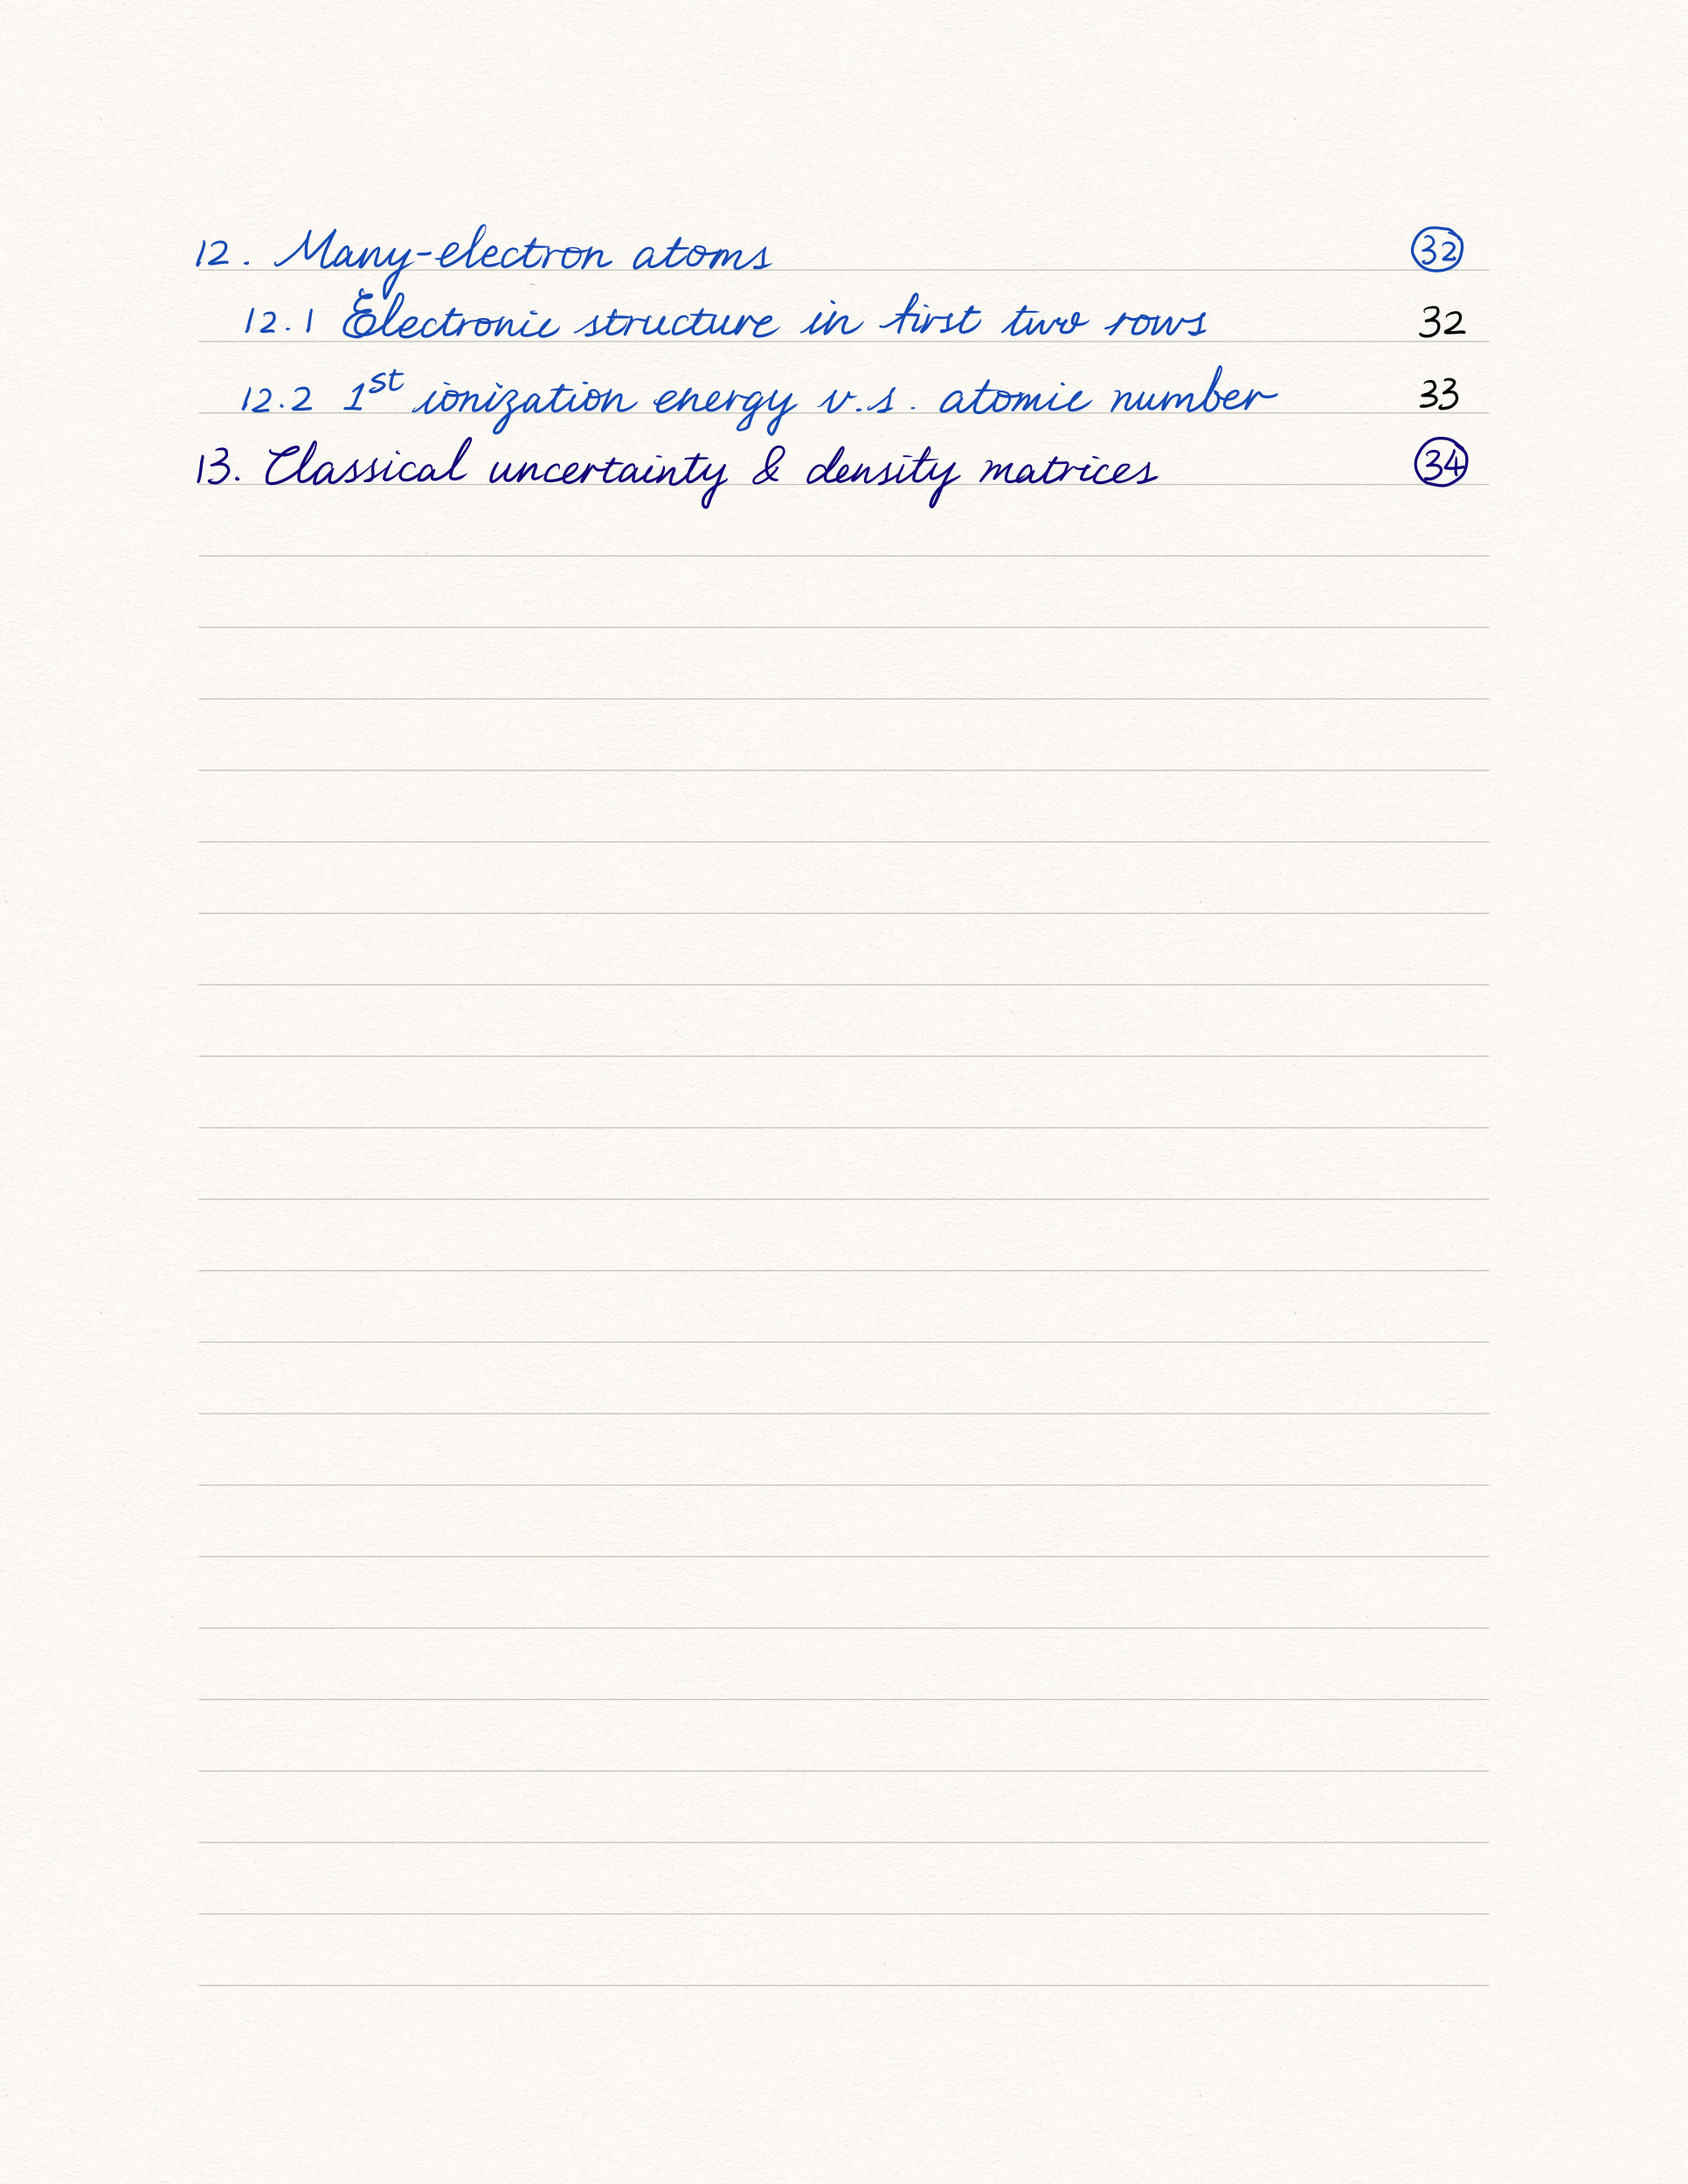 12. Many-electron atoms 32
12.1 Electronic structure in first two rows 32
12.2 1st ionization energy v.s. atomic number 33
13. Classical uncertainty & density matrices 34